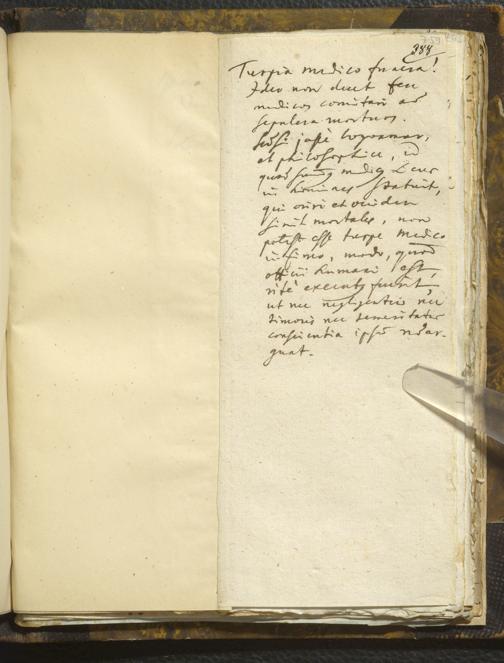 388
Turpia medico funera!
Ideo non decet seu
medicos comitari ad
sepulcra mortuos.
Sed si
et philosophice, id
quod summus medicus Deus
in homines statuit,
qui oriri et occidere
sinit mortales, non
potest esse turpe medico
infimo, modo, quod
officii humani est,
rite executus fuerit,
ut nec negligentiae nec
timoris nec temeritatis
conscientia ipsum redar-
guat.